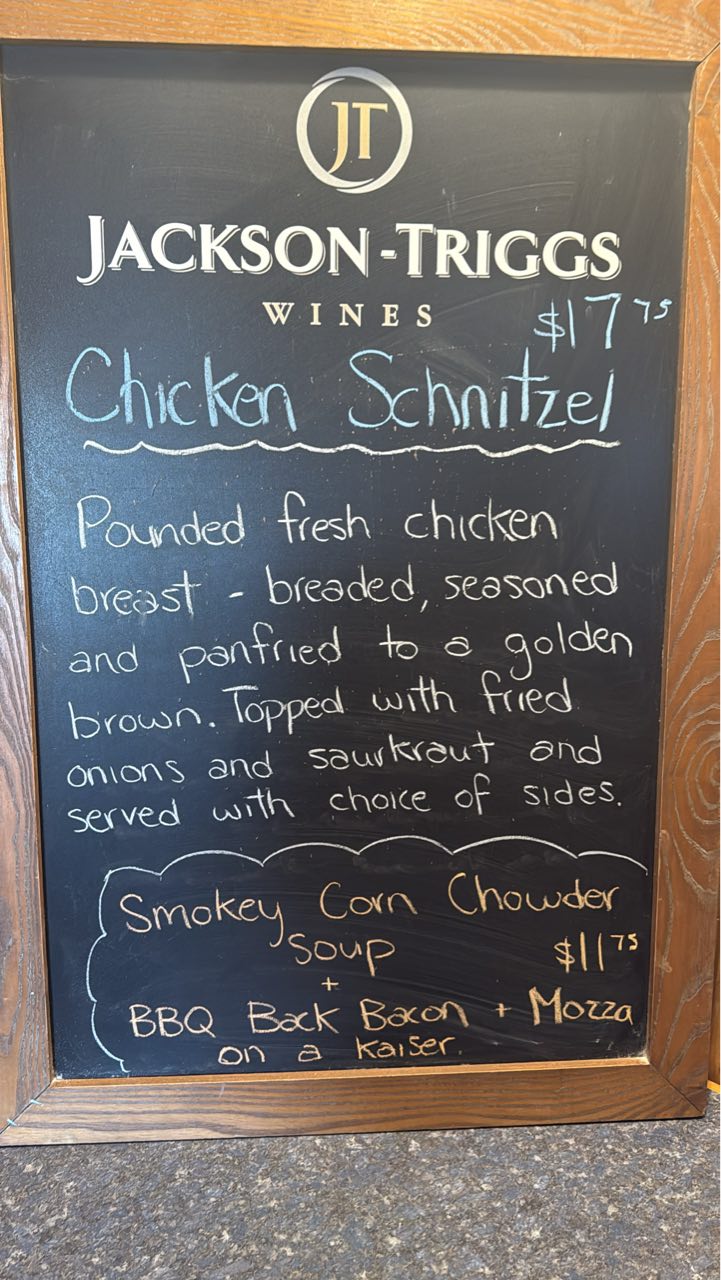 JT
JACKSON-TRIGGS
WINES
$17 75
Chicken Schnitzel
Pounded fresh chicken
breast - breaded, seasoned
and panfried to a golden
brown. Topped with fried
onions and saurkraut and
served with choice of sides.
Smokey Corn Chowder
Soup $11 75
+
BBQ Back Bacon + Mozza
on a kaiser.